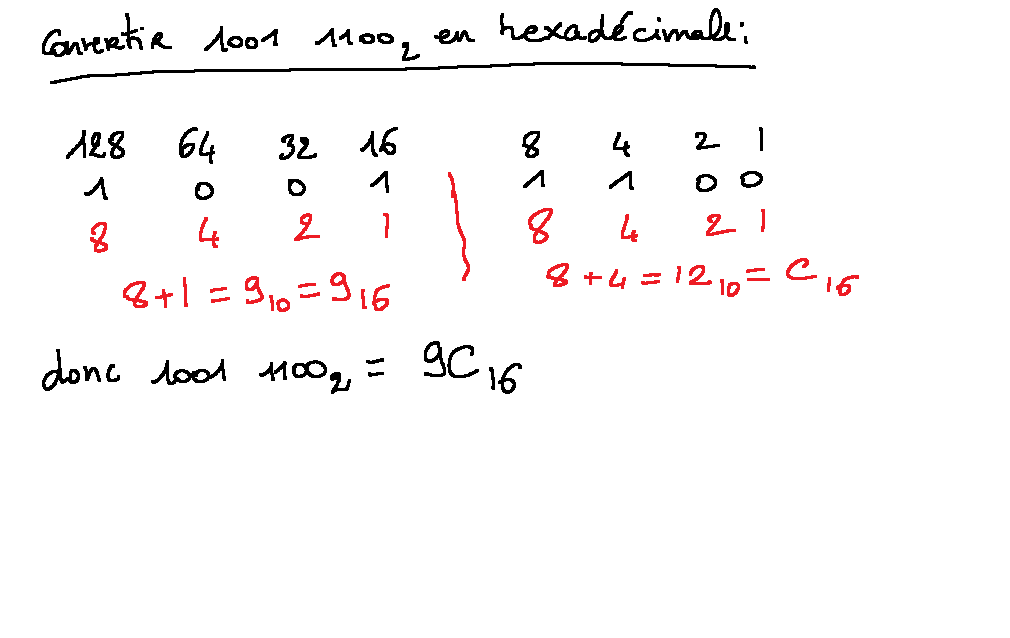 Convertir 1001 1100₂ en hexadécimale :
128 64 32 16 8 4 2 1
1 0 0 1 1 1 0 0
8 4 2 1 8 4 2 1
8+1 = 9₁₀ = 9₁₆ 8+4 = 12₁₀ = C₁₆
donc 1001 1100₂ = 9C₁₆